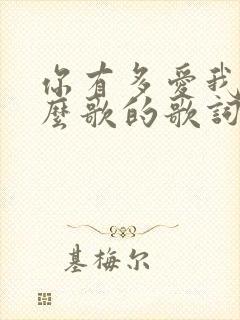 你有多爱我
麼歌的歌詞
基梅尔